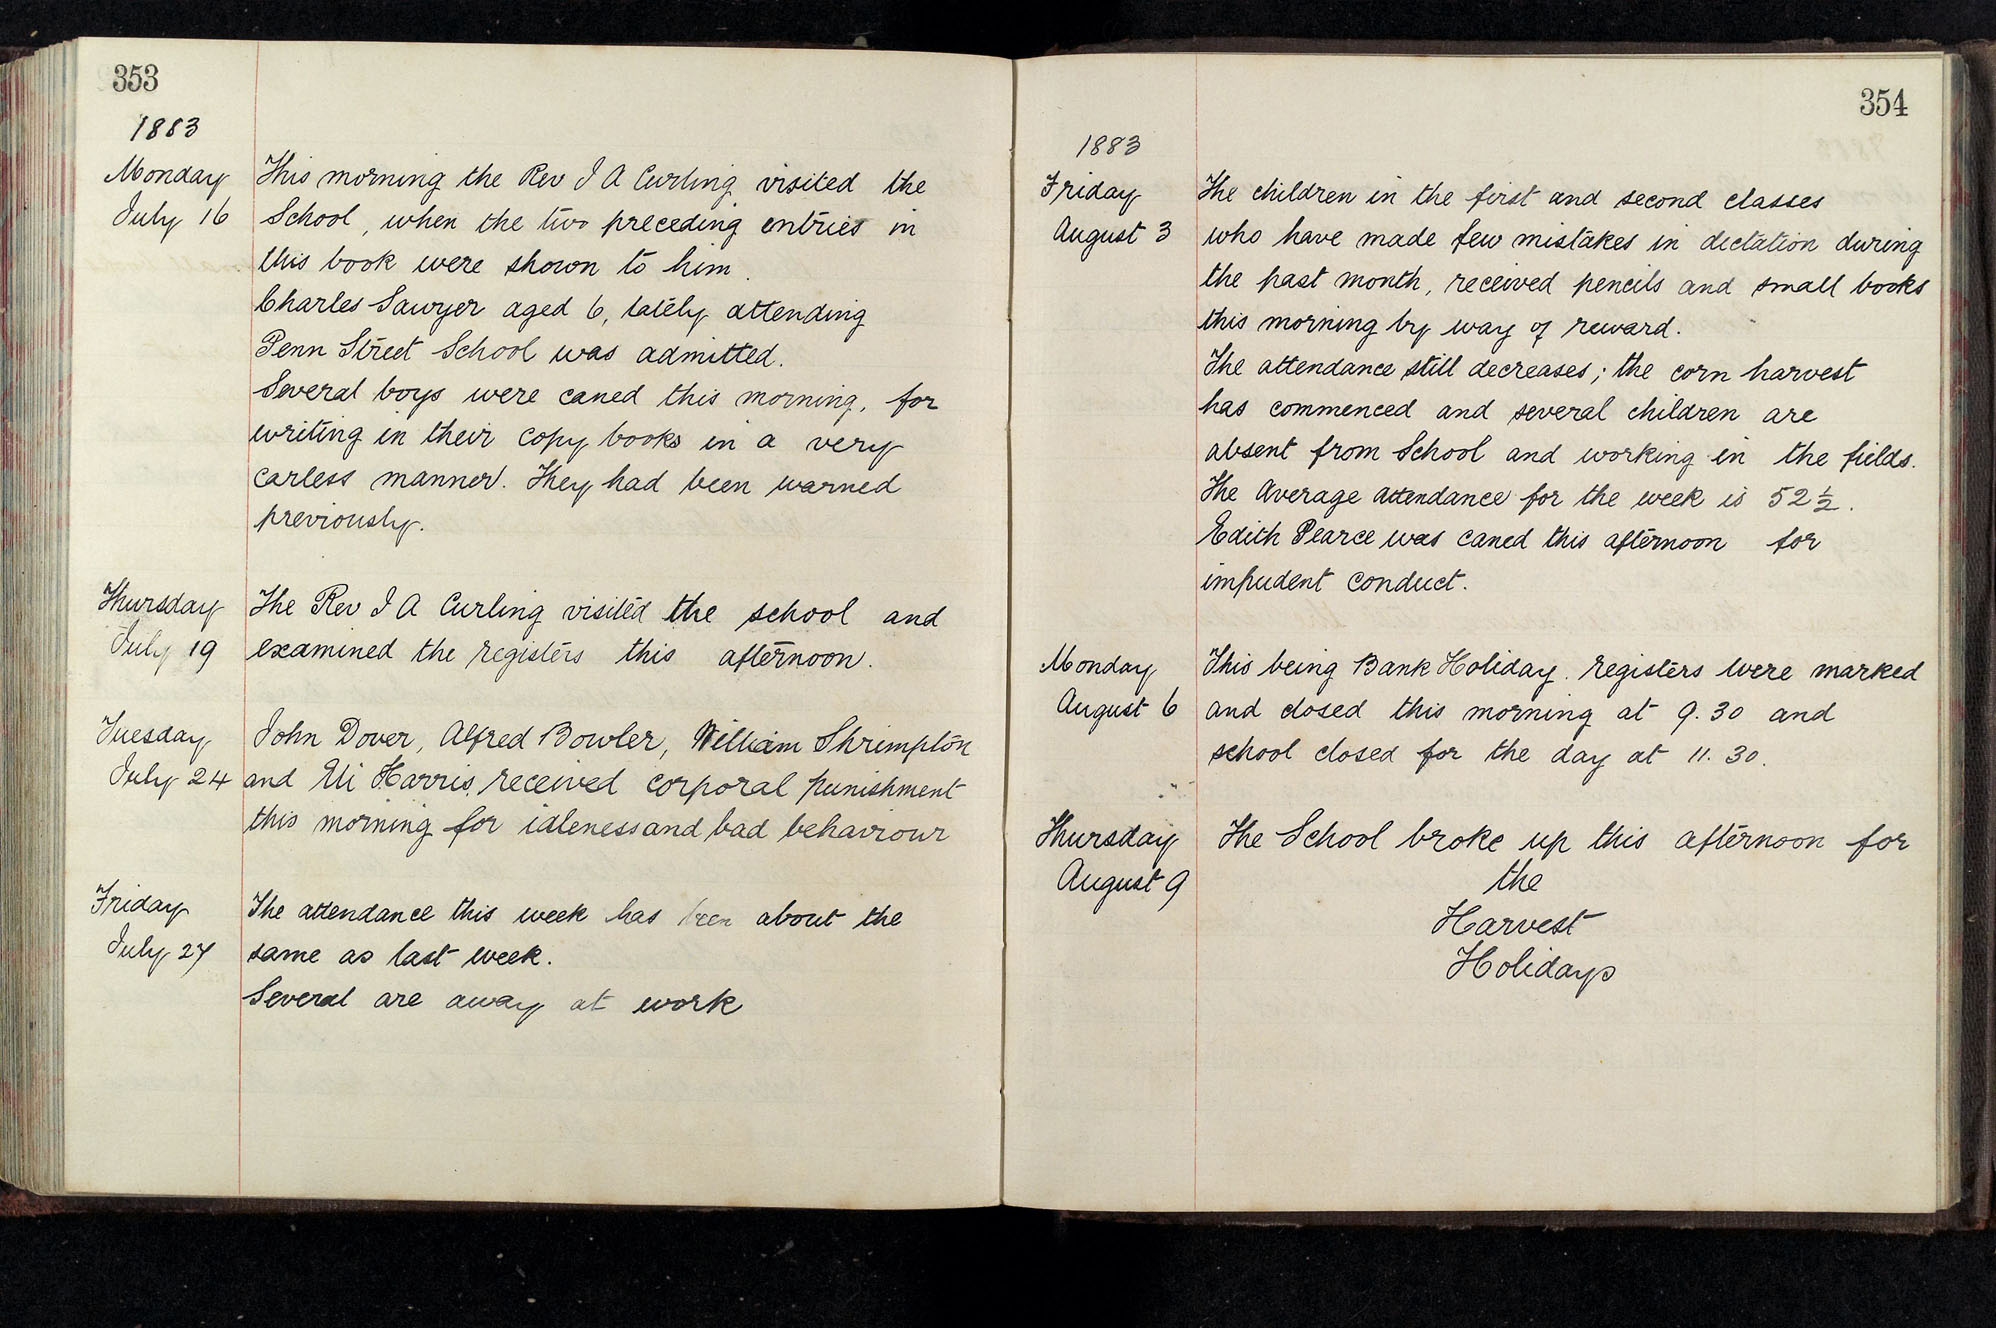 353
1883
Monday
July 16
This morning the Rev J A Curling visited the
School, when the two preceding entries in
this book were shown to him.
Charles Sawyer aged 6, lately attending
Penn Street School was admitted.
Several boys were caned this morning, for
writing in their copy books in a very
carless manner. They had been warned
previously.
Thursday
July 19
The Rev J A Curling visited the school and
examined the registers this afternoon.
Tuesday
July 24
John Dover, Alfred Bowler, William Shrimpton
and Eli Harris, received corporal punishment
this morning for idleness and bad behaviour
Friday
July 27
The attendance this week has been about the
same as last week.
Several are away at work
354
1883
Friday
August 3
The children in the first and second classes
who have made few mistakes in dictation during
the past month, received pencils and small books
this morning by way of reward.
The attendance still decreases; the corn harvest
has commenced and several children are
absent from School and working in the fields.
The Average Attendance for the week is 52 1/2.
Edith Pearce was caned this afternoon for
impudent conduct.
Monday
August 6
This being Bank Holiday. registers were marked
and closed this morning at 9.30 and
school closed for the day at 11.30.
Thursday
August 9
The School broke up this afternoon for
the
Harvest
Holidays